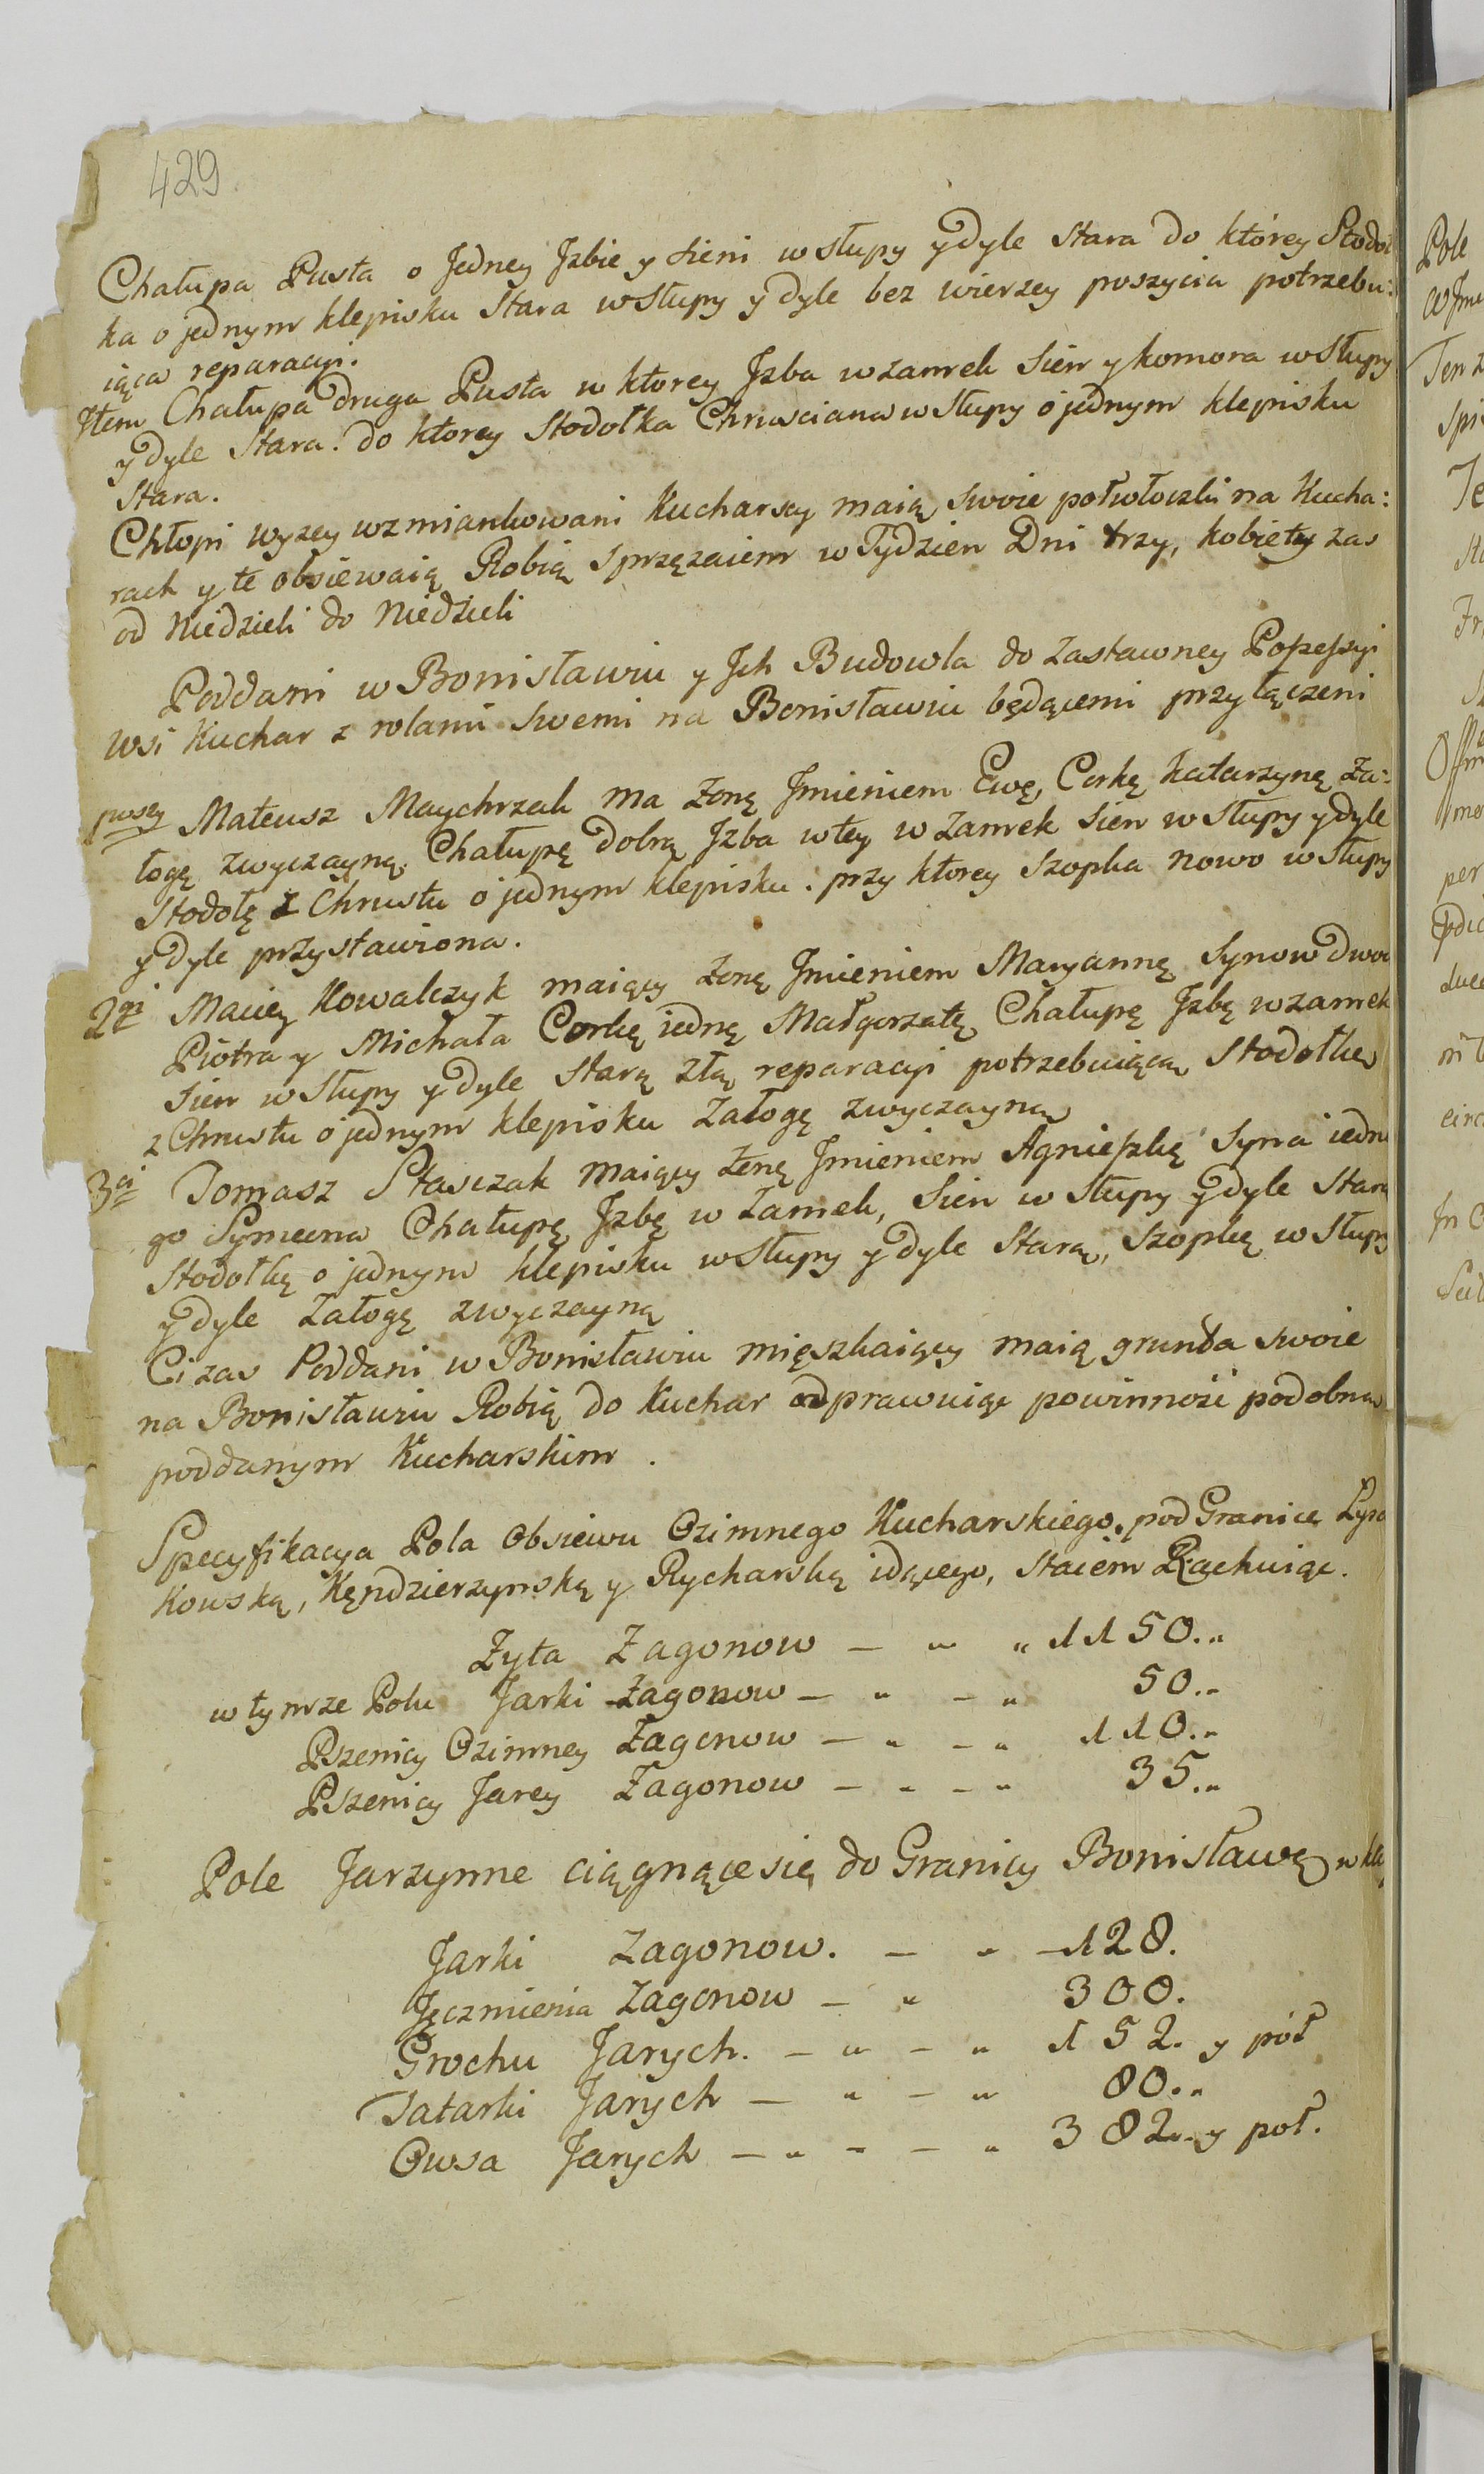 429.
Chałupa Pusta o Jedney Jzbie y Sieni w słupy y Dyle stara do którey Stodoł
ka o jednym klepisku Stara w Słupy y dyle bez wierzey poszycia potrzebu:
iąca reparacyi.
Jtem Chałupa druga Pusta w ktorey Jzba w zamek Sien y komora w Słupy
y dyle Stara. do ktorey Stodołka Chrusciana w Słupy o jednym klepisku
Stara.
Chłopi wyzey wzmiankowani Kucharscy maią swoie połwłoczki na Kucha:
rach y te obsiewaią Robią sprzęzaiem w Tydzien Dni trzy, kobiety zas
od Niedzieli do Niedzieli
Poddani w Bonisławiu y Jch Budowla do zastawney Possessyi
wsi Kuchar z rolami swemi na Bonisławiu będącemi przyłączeni
pszy Mateusz Maychrzak ma Zonę Jmieniem Ewę, Corkę Katarzynę Za:
łogę zwyczayną, Chałupę dobrą Jzba w tey w zamek Sien w słupy y dyle
Stodołę z Chrustu o jednym klepisku. przy ktorey szopka nowo w słupy
y dyle przystawiona.
2gi Maciey Kowalczyk maiący Zonę Jmieniem Maryannę Synow dwoch
Piotra y Michała Corkę iednę Małgorzatę Chałupę Jzbę w zamek
Sien w słupy y dyle starą złą reparacyi potrzebuiącą, Stodołkę
z Chrustu o jednym klepisku Załogę zwyczayną
3ci Tomasz Stasczak maiący Zonę Jmieniem Agnieszkę Syna iedne
go Symeona Chałupę Jzbę w Zamek, Sien w słupy y dyle stara
Stodołkę o jednym klepisku w słupy y dyle Starą, Szopkę w słupy
y dyle Załogę zwyczayną
Ci zas Poddani w Bonisławiu mięszkaiący maią grunta swoie
na Bonisławiu Robią do Kuchar odprawuiąc powinność podobną
poddanym Kucharskim.
Specyfikacya Pola Obsiewu Ozimnego Kucharskiego, pod Granice Łysa
kowską, Kęndzierzynską y Rycharską idącego, staiem Rachuiąc.
Zyta Zagonow – „ „ 1150..„
w tymze Polu Jarki Zagonow – „ – „ 50..„
Pszenicy Ozimney Zagonow – „ – „ 110..„
Pszenicy Jarey Zagonow – „ – „ 35..„
Pole Jarzynne ciągnące się do Granicy Bonisławę
Jarki Zagonow. – „ – 128.
Jęczmienia Zagonow – „ 300.
Grochu Jarych. – „ – „ 152. y pół
Tatarki Jarych – „ – „ 80..„
Owsa Jarych – „ – – „ 382.. y poł.